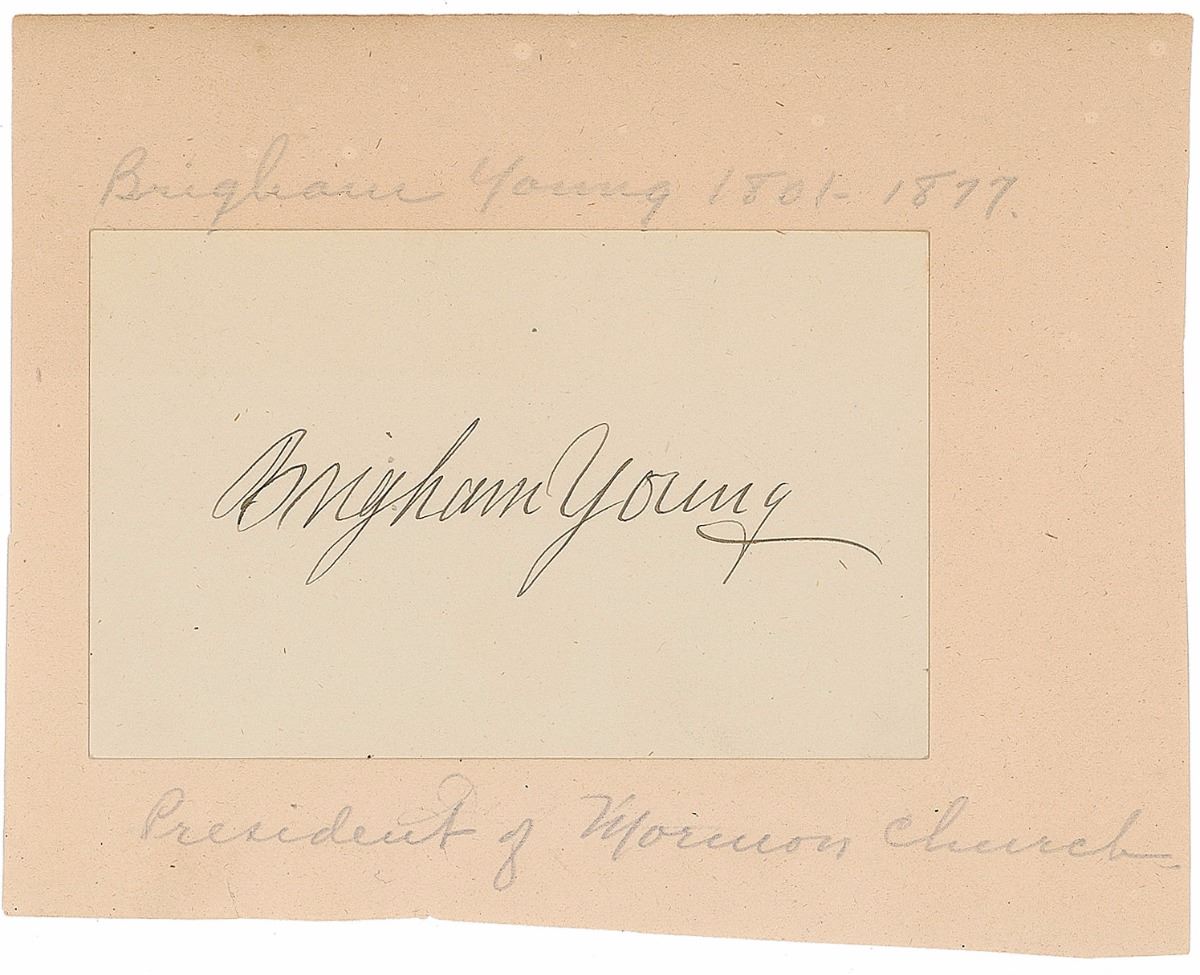 Brigham Young 1801-1877.
Brigham Young
President of Mormon Church